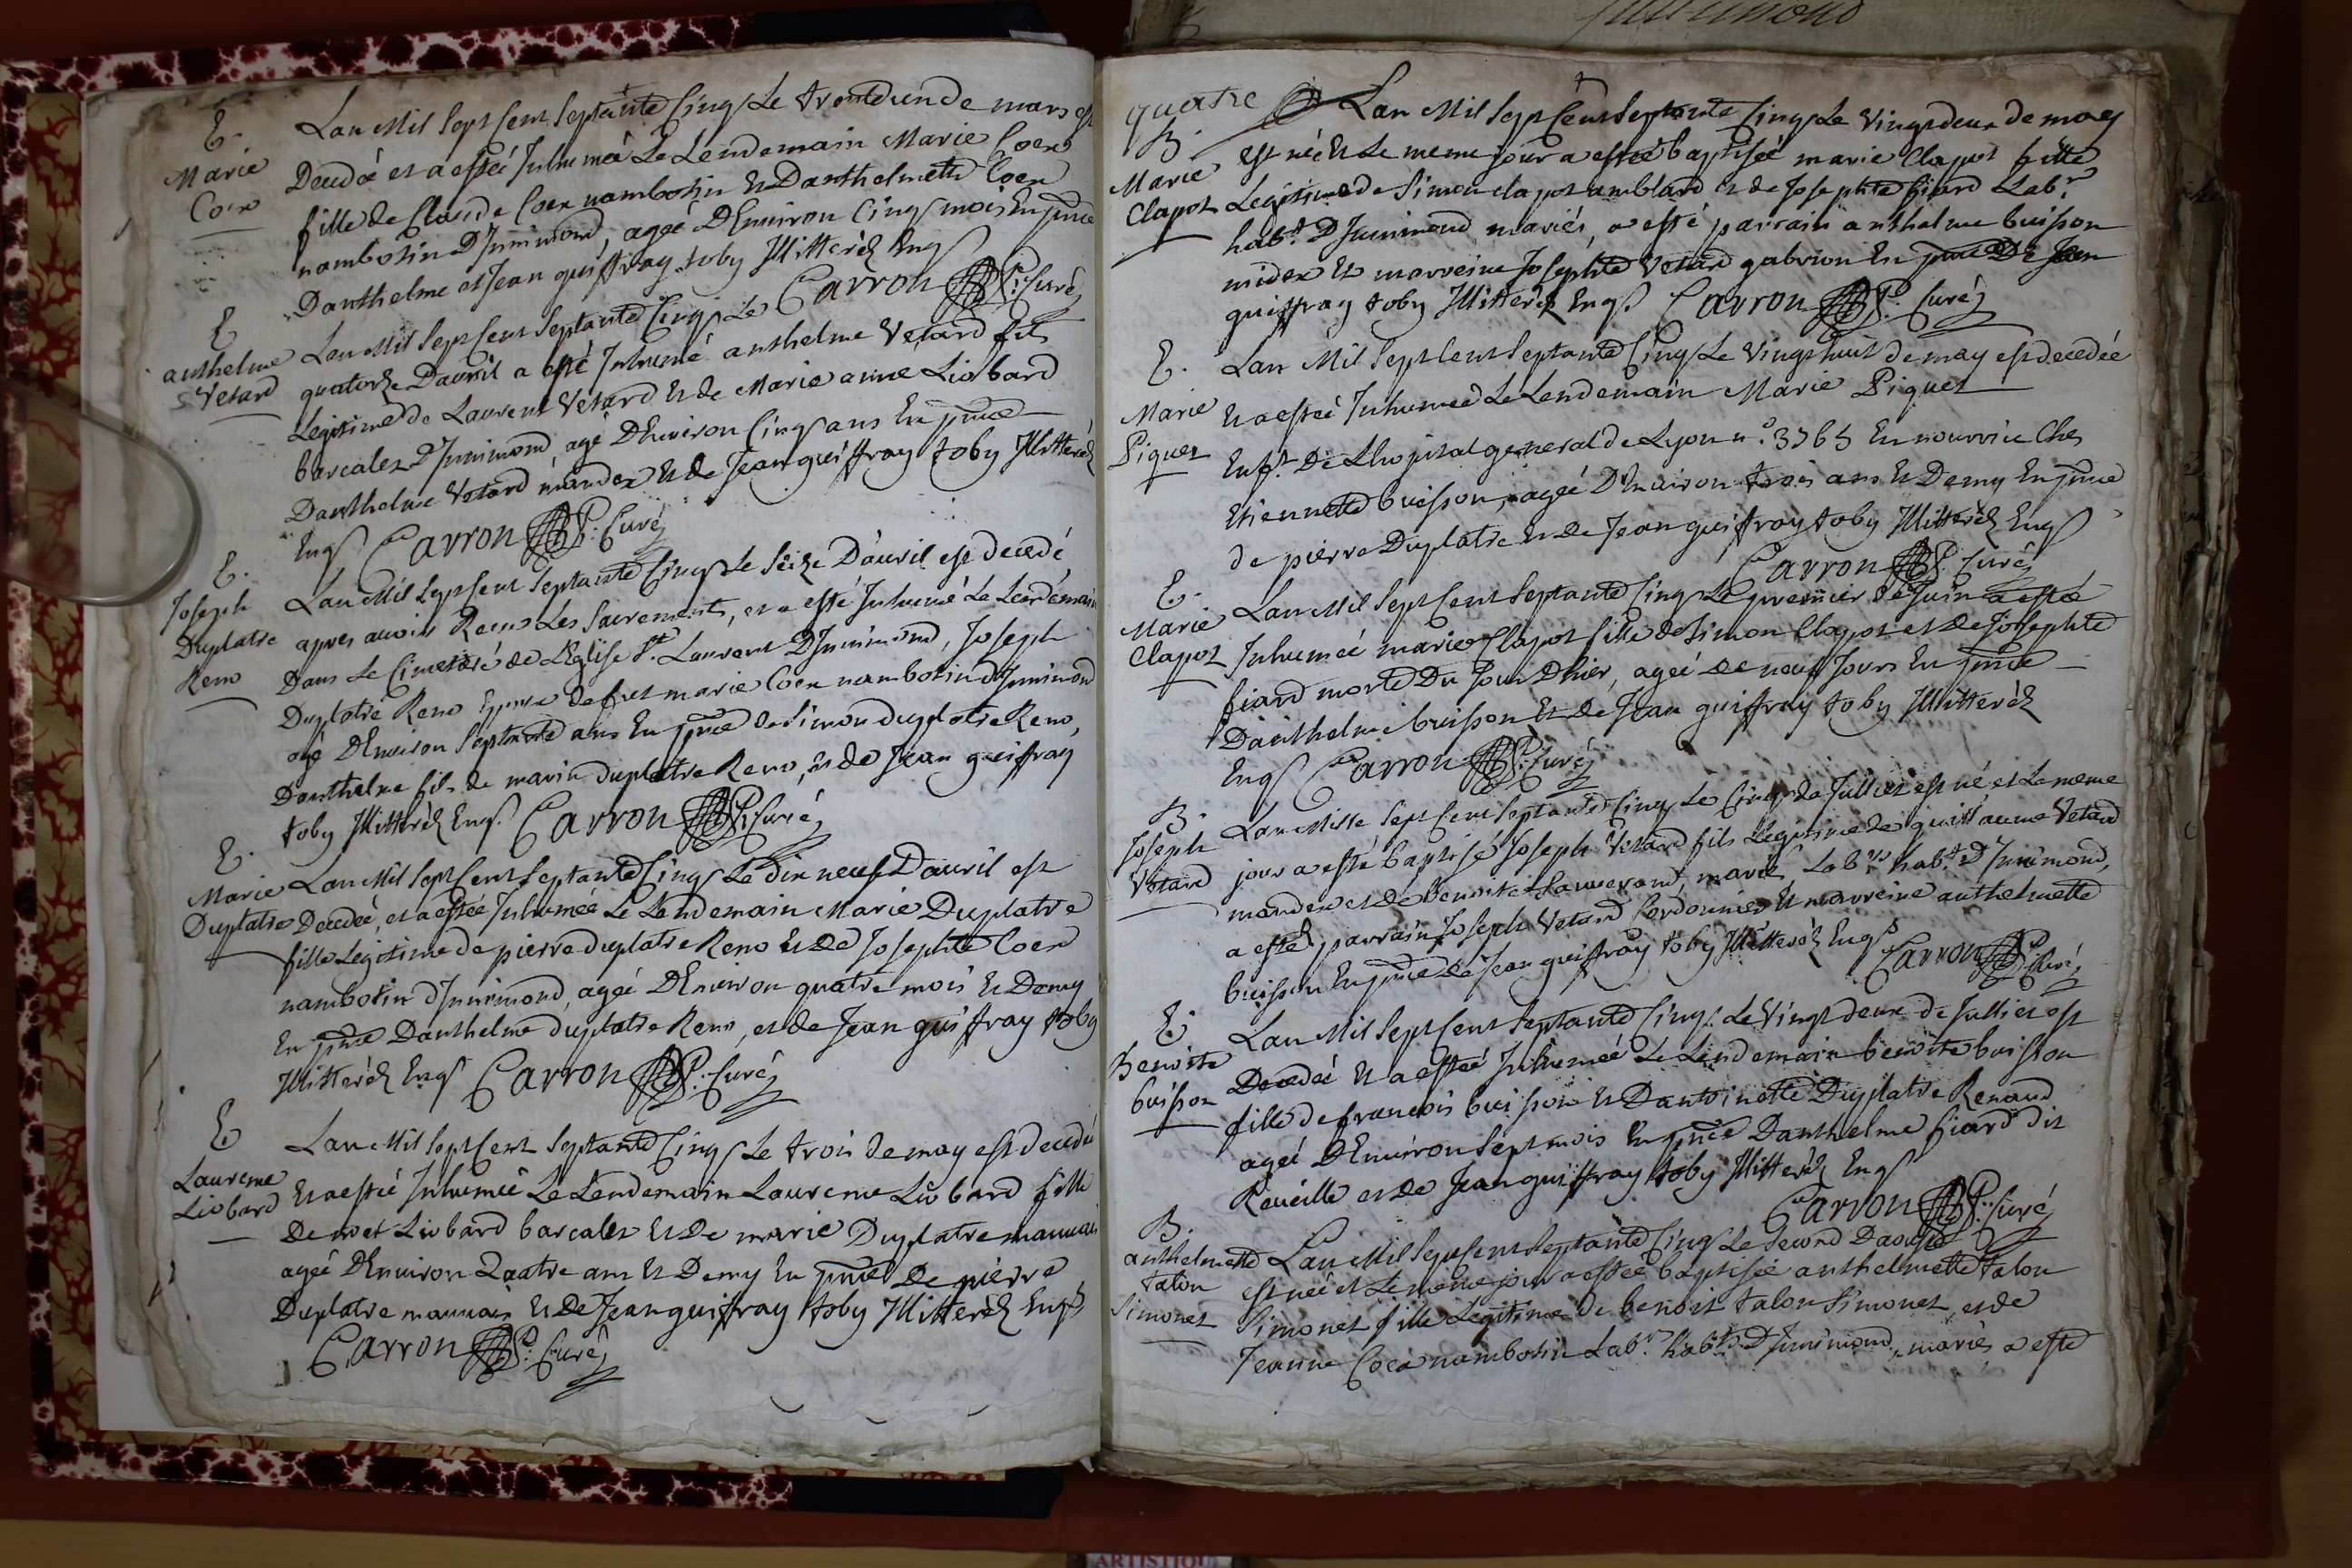 E.
Marie
Coen
Lan Mil Sept Cent Septante Cinq Le trente un de mars est
Decedéé et a estéé Inhuméé Le Lendemain Marie Coen
fille de Claude Coen nambotin Et Danthelmette Coen
nambotin D'Innimond, agéé D'Environ Cinq mois En pnce
Danthelme et Jean guiffray toby Illitteréz Enqs
Carron P: Curé
E
anthelme
Vetard
Lan Mil Sept Cent Septante Cinq Le
quatorze Davril a esté Inhumé anthelme Vetard fils
Legitime de Laurent Vetard Et de Marie anne Liobard
barcalet D'Innimond, agé D'Environ Cinq ans En pnce
Danthelme Vetard mandex Et de Jean guiffray toby Illitteréz
Enqs Carron P: Curé
E.
Joseph
Duplatre
Reno
Lan Mil Sept Cent Septante Cinq Le Seize D'avril est decedé,
apres avoir Recu Les Sacrements, et a esté Inhumé Le Lendemain
Dans Le Cimetiere de L'Eglise St. Laurent D'Innimond, Joseph
Duplatre Reno Epoux de fut marie Coen nambotin d'Innimond
agé D'Environ Septante ans En pnce de Simon duplatre Reno,
Danthelme fils de marin duplatre Reno, et de Jean guiffray
toby Illitteréz Enqs. Carron P: Curé
E.
Marie
Duplatre
Lan Mil Sept Cent Septante Cinq Le Dix neuf D'avril est
Decedéé, et a estéé Inhuméé Le Lendemain Marie Duplatre
fille Legitime de pierre duplatre Reno Et de Josephte Coen
nambotin d'Innimond, agéé D'Environ quatre mois Et Demy
En pnce Danthelme duplatre Reno, et de Jean guiffray toby
Illitteréz Enqs Carron P: Curé
E
Laurence
Liobard
Lan Mil Sept Cent Septante Cinq Le trois de may est decedéé
Et a estéé Inhuméé Le Lendemain Laurence Liobard fille
De noet Liobard barcalet Et de marie Duplatre mauvais
agéé D'Environ Quatre ans Et Demy En pnce De pierre
Duplatre mauvais Et de Jean guiffray toby Illitteréz Enqs
Carron P: Curé
quatre
B.
Marie
Clapot
Lan Mil Sept Cent Septante Cinq Le Vingt deux de may
est néé Et Le meme jour a estéé baptiséé marie Clapot fille
Legitime de Simon clapot amblard et de Josephte fiard Labr.
habts. D'Innimond, mariés, a esté parrain anthelme buisson
midex Et marreine Josephte Vetard gabrion En pnce De Jean
guiffray toby Illitteréz Enqs. Carron P: Curé
E.
Marie
Piquet
Lan Mil Sept Cent Septante Cinq Le Vingt huit de may est decedéé
Et a estéé Inhuméé Le Lendemain Marie Piquet
Enft. De L'hopital general de Lyon n°. 3765 En nourrice Chez
Etiennette buisson, agéé D'Environ trois ans Et Demy En pnce
de pierre Duplatre Et de Jean guiffray toby Illitteréz Enqs
Carron P: Curé
E.
Marie
Clapot
Lan Mil Sept Cent Septante Cinq Le premier de Juin a estéé
Inhuméé marie Clapot fille de Simon Clapot et de Josephte
fiard morte Du Jour D'hier, agéé de neuf Jours En pnce
Danthelme buisson Et de Jean guiffray toby Illitteréz
Enqs Carron P: Curé
B.
Joseph
Vetard
Lan Mille Sept Cent Septante Cinq Le Cinq de Jullier est né, et Le meme
jour a esté baptisé Joseph Vetard fils Legitime de guillaume Vetard
mandex et de benoite Sauverand, mariés Labrs. habts. D'Innimond,
a esté parrain Joseph Vetard Cordonnier Et marreine anthelmette
buisson En pnce de Jean guiffray toby Illitteréz Enqs
Carron P: Curé
E.
Benoite
buisson
Lan Mil Sept Cent Septante Cinq Le Vingt deux de Jullier est
Decedéé Et a estéé Inhuméé Le Lendemain benoite buisson
fille de francois buisson Et Dantoinette Duplatre Renaud
agéé D'Environ Sept mois En pnce Danthelme fiard dit
Reveille et de Jean guiffray toby Illitteréz Enqs
Carron P: Curé
B.
anthelmette
talon
Simonet
Lan Mil Sept Cent Septante Cinq Le Second Daoust
est néé et Le meme jour a estéé baptiséé anthelmette talon
Simonet fille Legitime de benoit talon Simonet, et de
Jeanne Coen nambotin Labr. habts. D'Innimond, mariés a esté